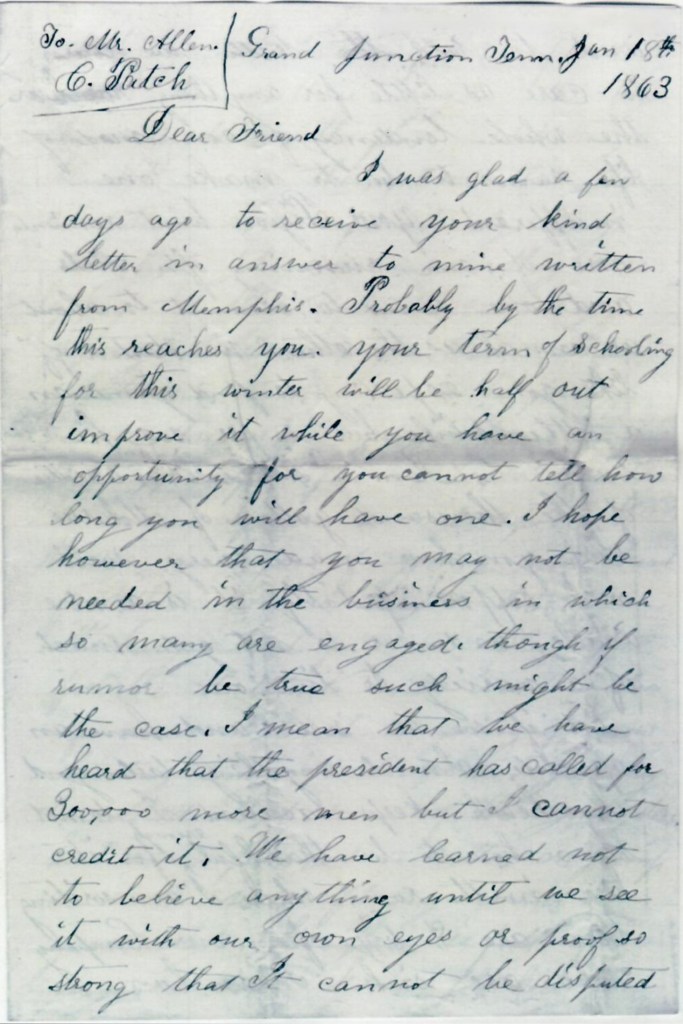 To. Mr. Allen. Grand Junction Tenn. Jan 18th
C. Patch 1863
Dear Friend
I was glad a few
days ago to receive your kind
letter in answer to mine written
from Memphis. Probably by the time
this reaches you. your term of schooling
for this winter will be half out
improve it while you have an
opportunity for you cannot tell how
long you will have one. I hope
however that you may not be
needed in the business in which
so many are engaged. though if
rumor be true such might be
the case. I mean that we have
heard that the president has called for
300,000 more men but I cannot
credit it. We have learned not
to believe anything until we see
it with our own eyes or proof so
strong that It cannot be disputed